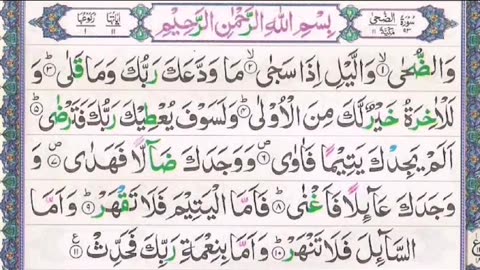 سُوْرَةُ الضُّحٰى مَكِّيَّةٌ
بِسْمِ اللّٰهِ الرَّحْمٰنِ الرَّحِيْمِ
وَالضُّحٰى ۙ﴿۱﴾ وَالَّيْلِ اِذَا سَجٰى ۙ﴿۲﴾ مَا وَدَّعَكَ رَبُّكَ وَمَا قَلٰى ؕ﴿۳﴾ وَ
لَلْاٰخِرَةُ خَيْرٌ لَّكَ مِنَ الْاُوْلٰى ؕ﴿۴﴾ وَلَسَوْفَ يُعْطِيْكَ رَبُّكَ فَتَرْضٰى ؕ﴿۵﴾
اَلَمْ يَجِدْكَ يَتِيْمًا فَاٰوٰى ۪﴿۶﴾ وَوَجَدَكَ ضَآلًّا فَهَدٰى ۪﴿۷﴾ وَ
وَجَدَكَ عَآئِلًا فَاَغْنٰى ؕ﴿۸﴾ فَاَمَّا الْيَتِيْمَ فَلَا تَقْهَرْ ؕ﴿۹﴾ وَاَمَّا
السَّآئِلَ فَلَا تَنْهَرْ ؕ﴿۱۰﴾ وَاَمَّا بِنِعْمَةِ رَبِّكَ فَحَدِّثْ ﴿۱۱﴾